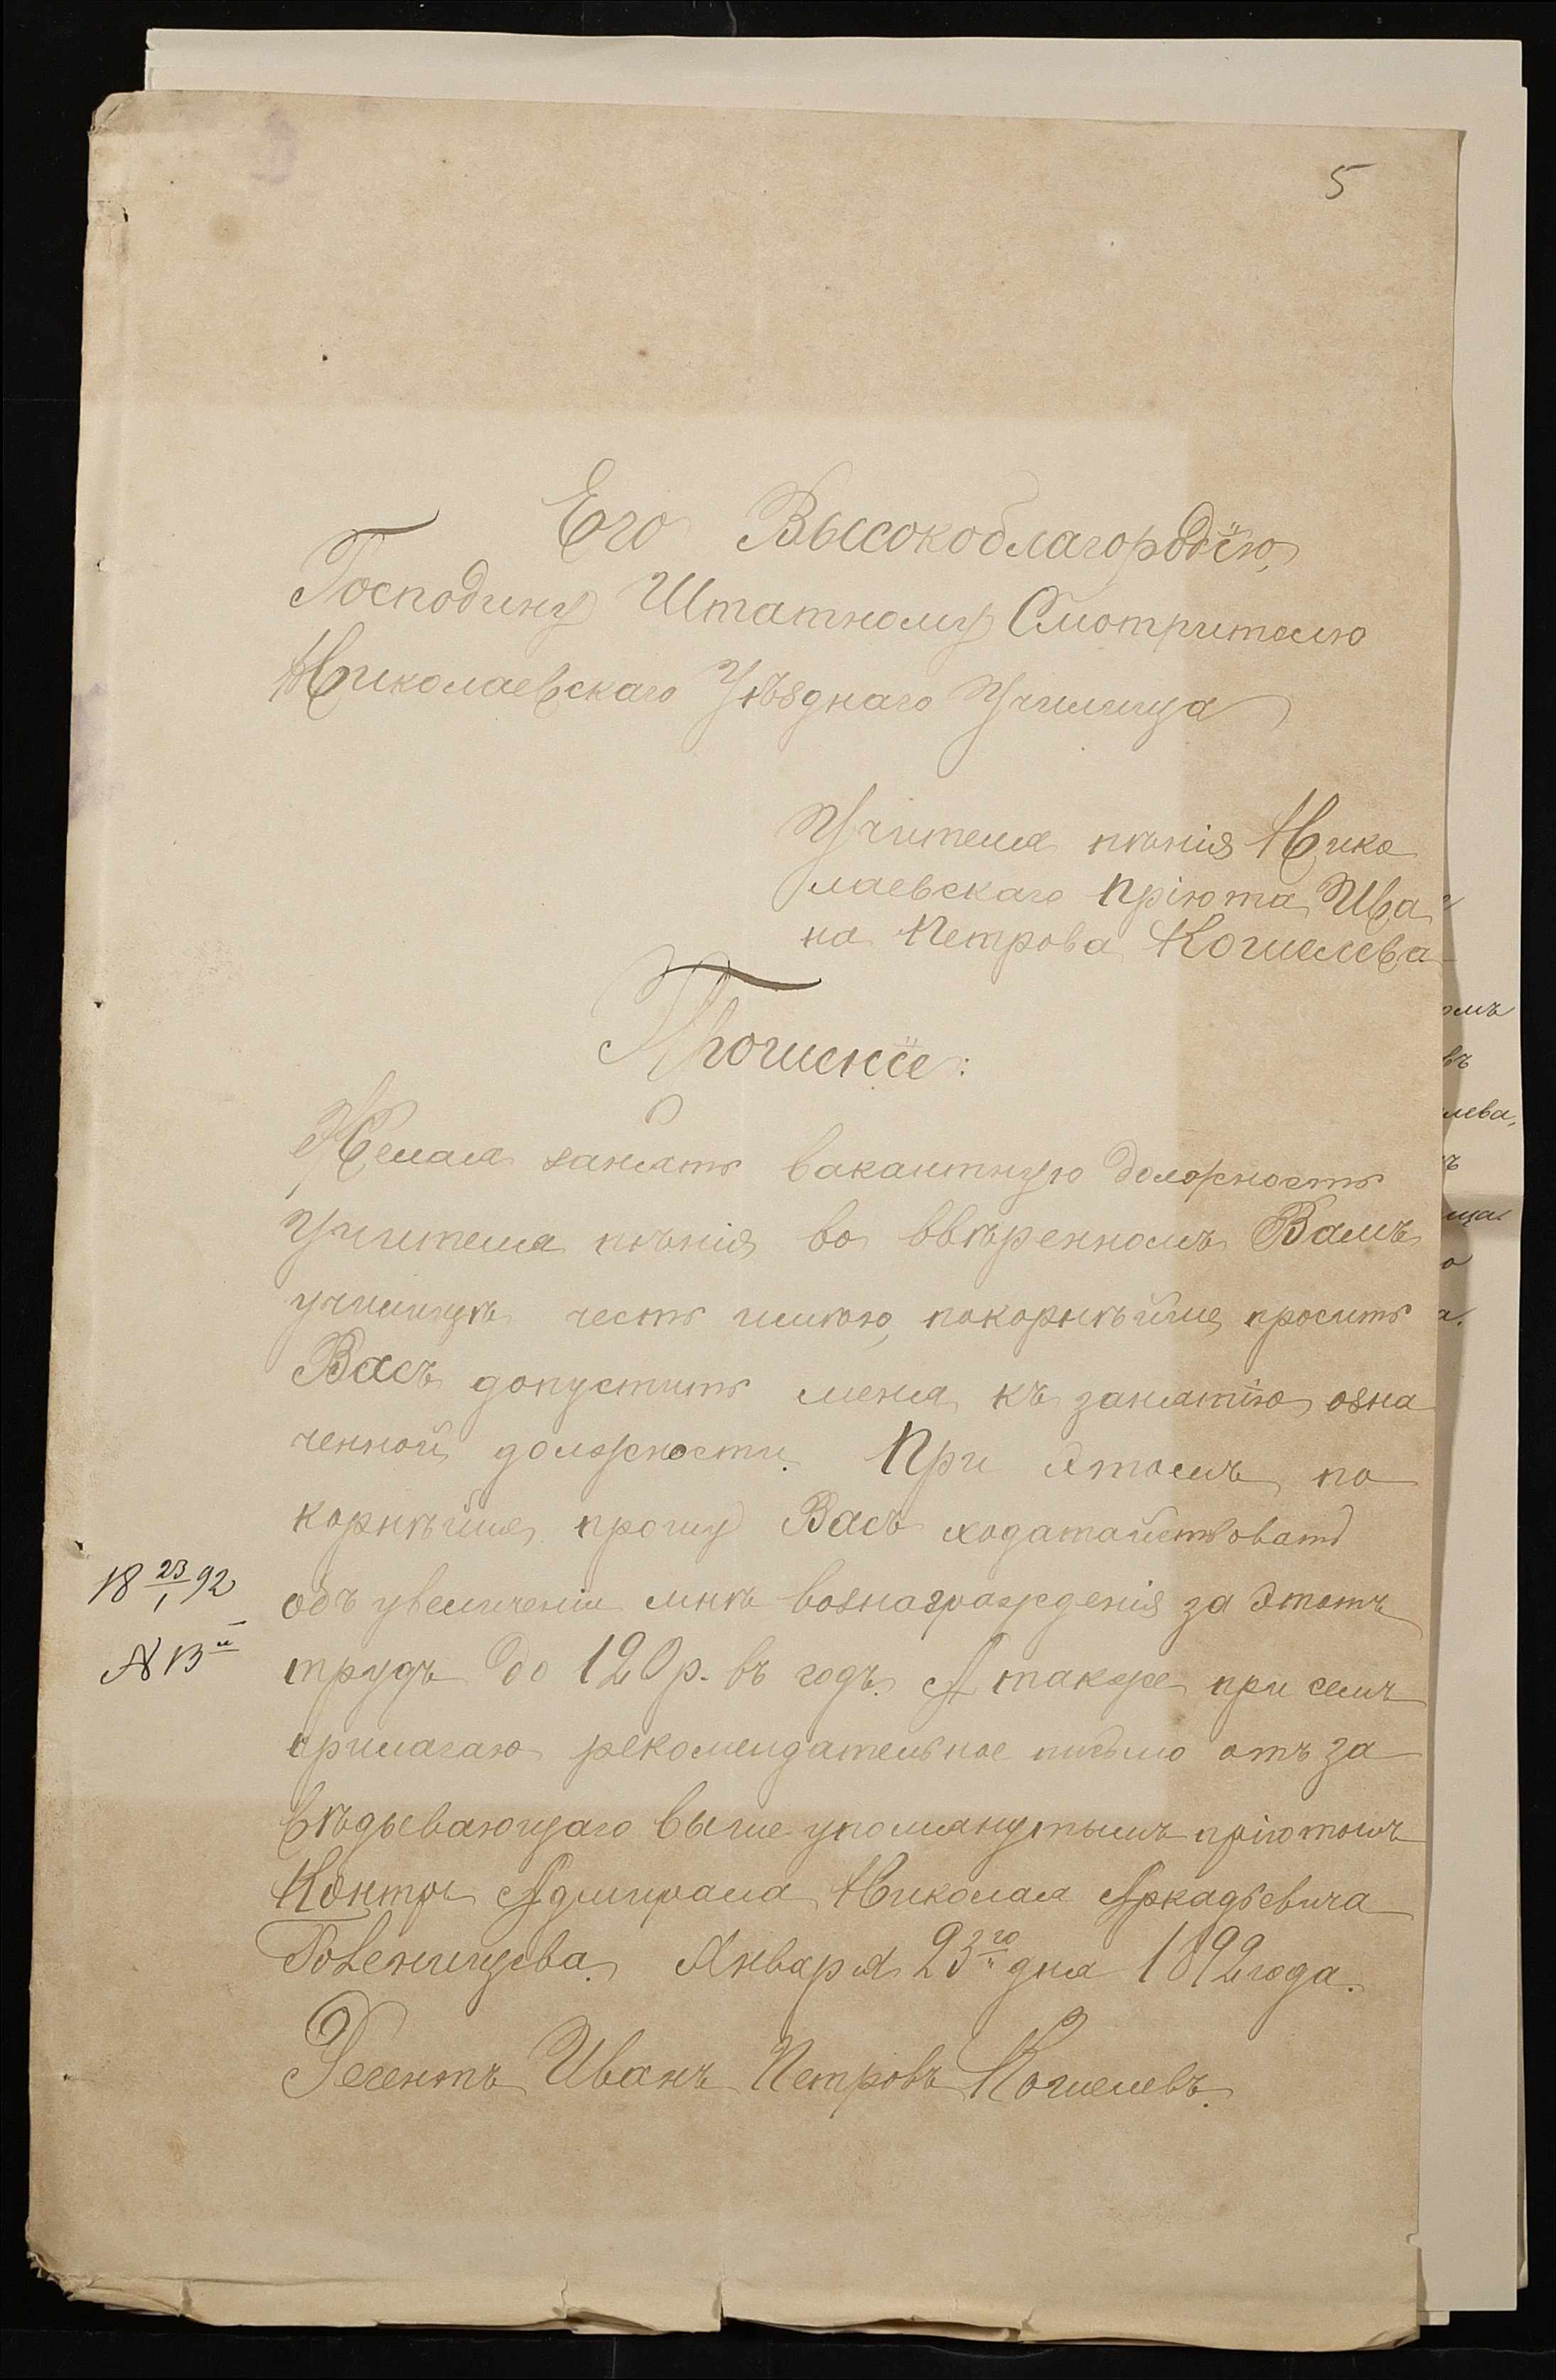 5
Его Высокоблагородію,
Господину Штатному Смотрителю
Николаевскаго Уѣзднаго Училища
Учителя пѣнія Нико
лаевскаго Пріюта Ива
на Петрова Кошелева
Прошеніе:
Желая занять вакантную должность
Учителя пѣнія во ввѣренномъ Вамъ
училищѣ честь имѣю, покорнѣйше, просить
Васъ допустить меня къ занятію озна
ченной должности. При этомъ по
корнѣйше, прошу Васъ ходатайствовать
объ увеличеніи мнѣ вознагражденія за этотъ
18 23/1 92
трудъ до 120 р. въ годъ. А также при семъ
№ 13
прилагаю рекомендательное письмо отъ за
вѣдывающаго выше упомянутымъ пріютомъ
Контръ Адмирала Николая Аркадьевича
Января 23го дня 1892 года.
Регентъ Иванъ Петровъ Кошелевъ.
омъ
въ
лева,
ъ
ща
о
а.